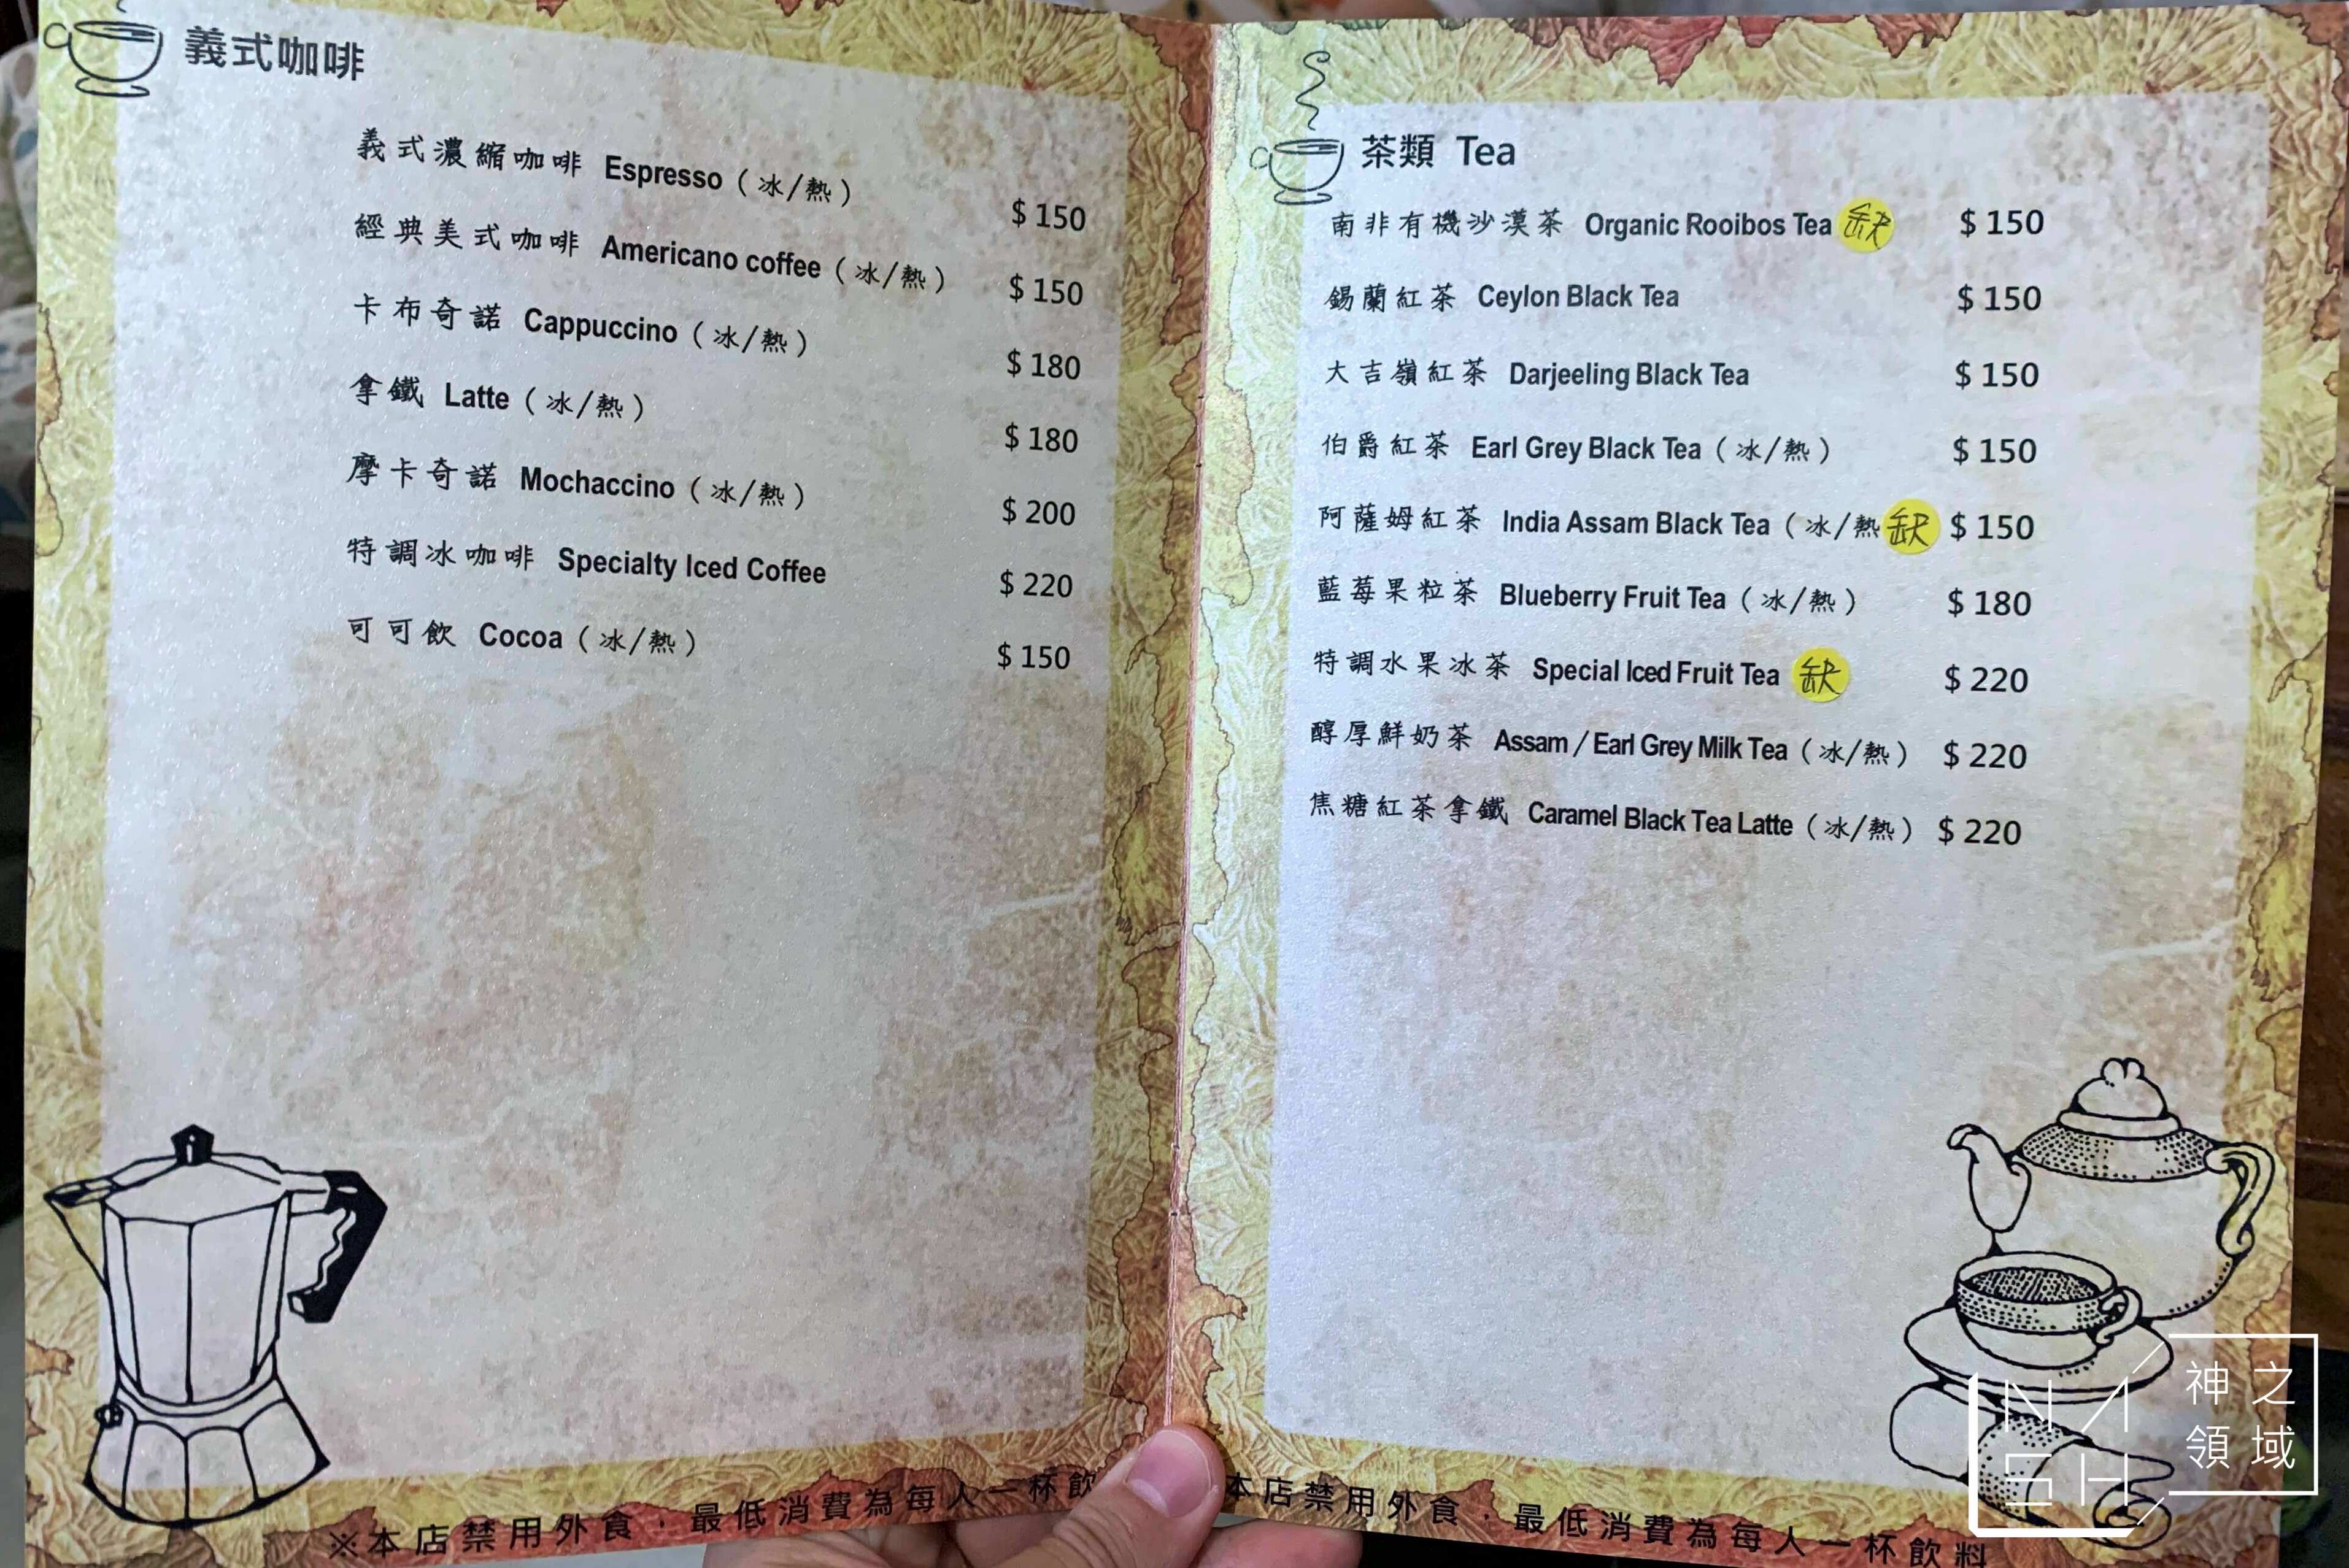 義式咖啡
義式濃縮咖啡 Espresso（冰/熱） $150
經典美式咖啡 Americano coffee（冰/熱） $150
卡布奇諾 Cappuccino（冰/熱） $180
拿鐵 Latte（冰/熱） $180
摩卡奇諾 Mochaccino（冰/熱） $200
特調冰咖啡 Specialty Iced Coffee $220
可可飲 Cocoa（冰/熱） $150
※本店禁用外食，最低消費為每人一杯飲
茶類 Tea
南非有機沙漠茶 Organic Rooibos Tea 缺 $150
錫蘭紅茶 Ceylon Black Tea $150
大吉嶺紅茶 Darjeeling Black Tea $150
伯爵紅茶 Earl Grey Black Tea（冰/熱） $150
阿薩姆紅茶 India Assam Black Tea（冰/熱 缺 $150
藍莓果粒茶 Blueberry Fruit Tea（冰/熱） $180
特調水果冰茶 Special Iced Fruit Tea 缺 $220
醇厚鮮奶茶 Assam / Earl Grey Milk Tea（冰/熱） $220
焦糖紅茶拿鐵 Caramel Black Tea Latte（冰/熱） $220
本店禁用外食，最低消費為每人一杯飲料
NASH
神之
領域